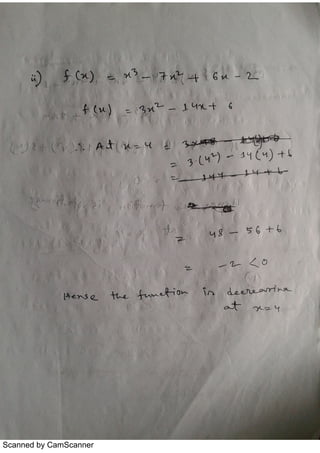 ii) f(x) = x³ - 7x² + 6x - 2
f(x) = 3x² - 14x + 6
At x = 4
= 3·(4²) - 14(4) + 6
= 144 - 14 + 6
= 48 - 56 + 6
= -2 < 0
Hense the function is decreasing
at x = 4
Scanned by CamScanner